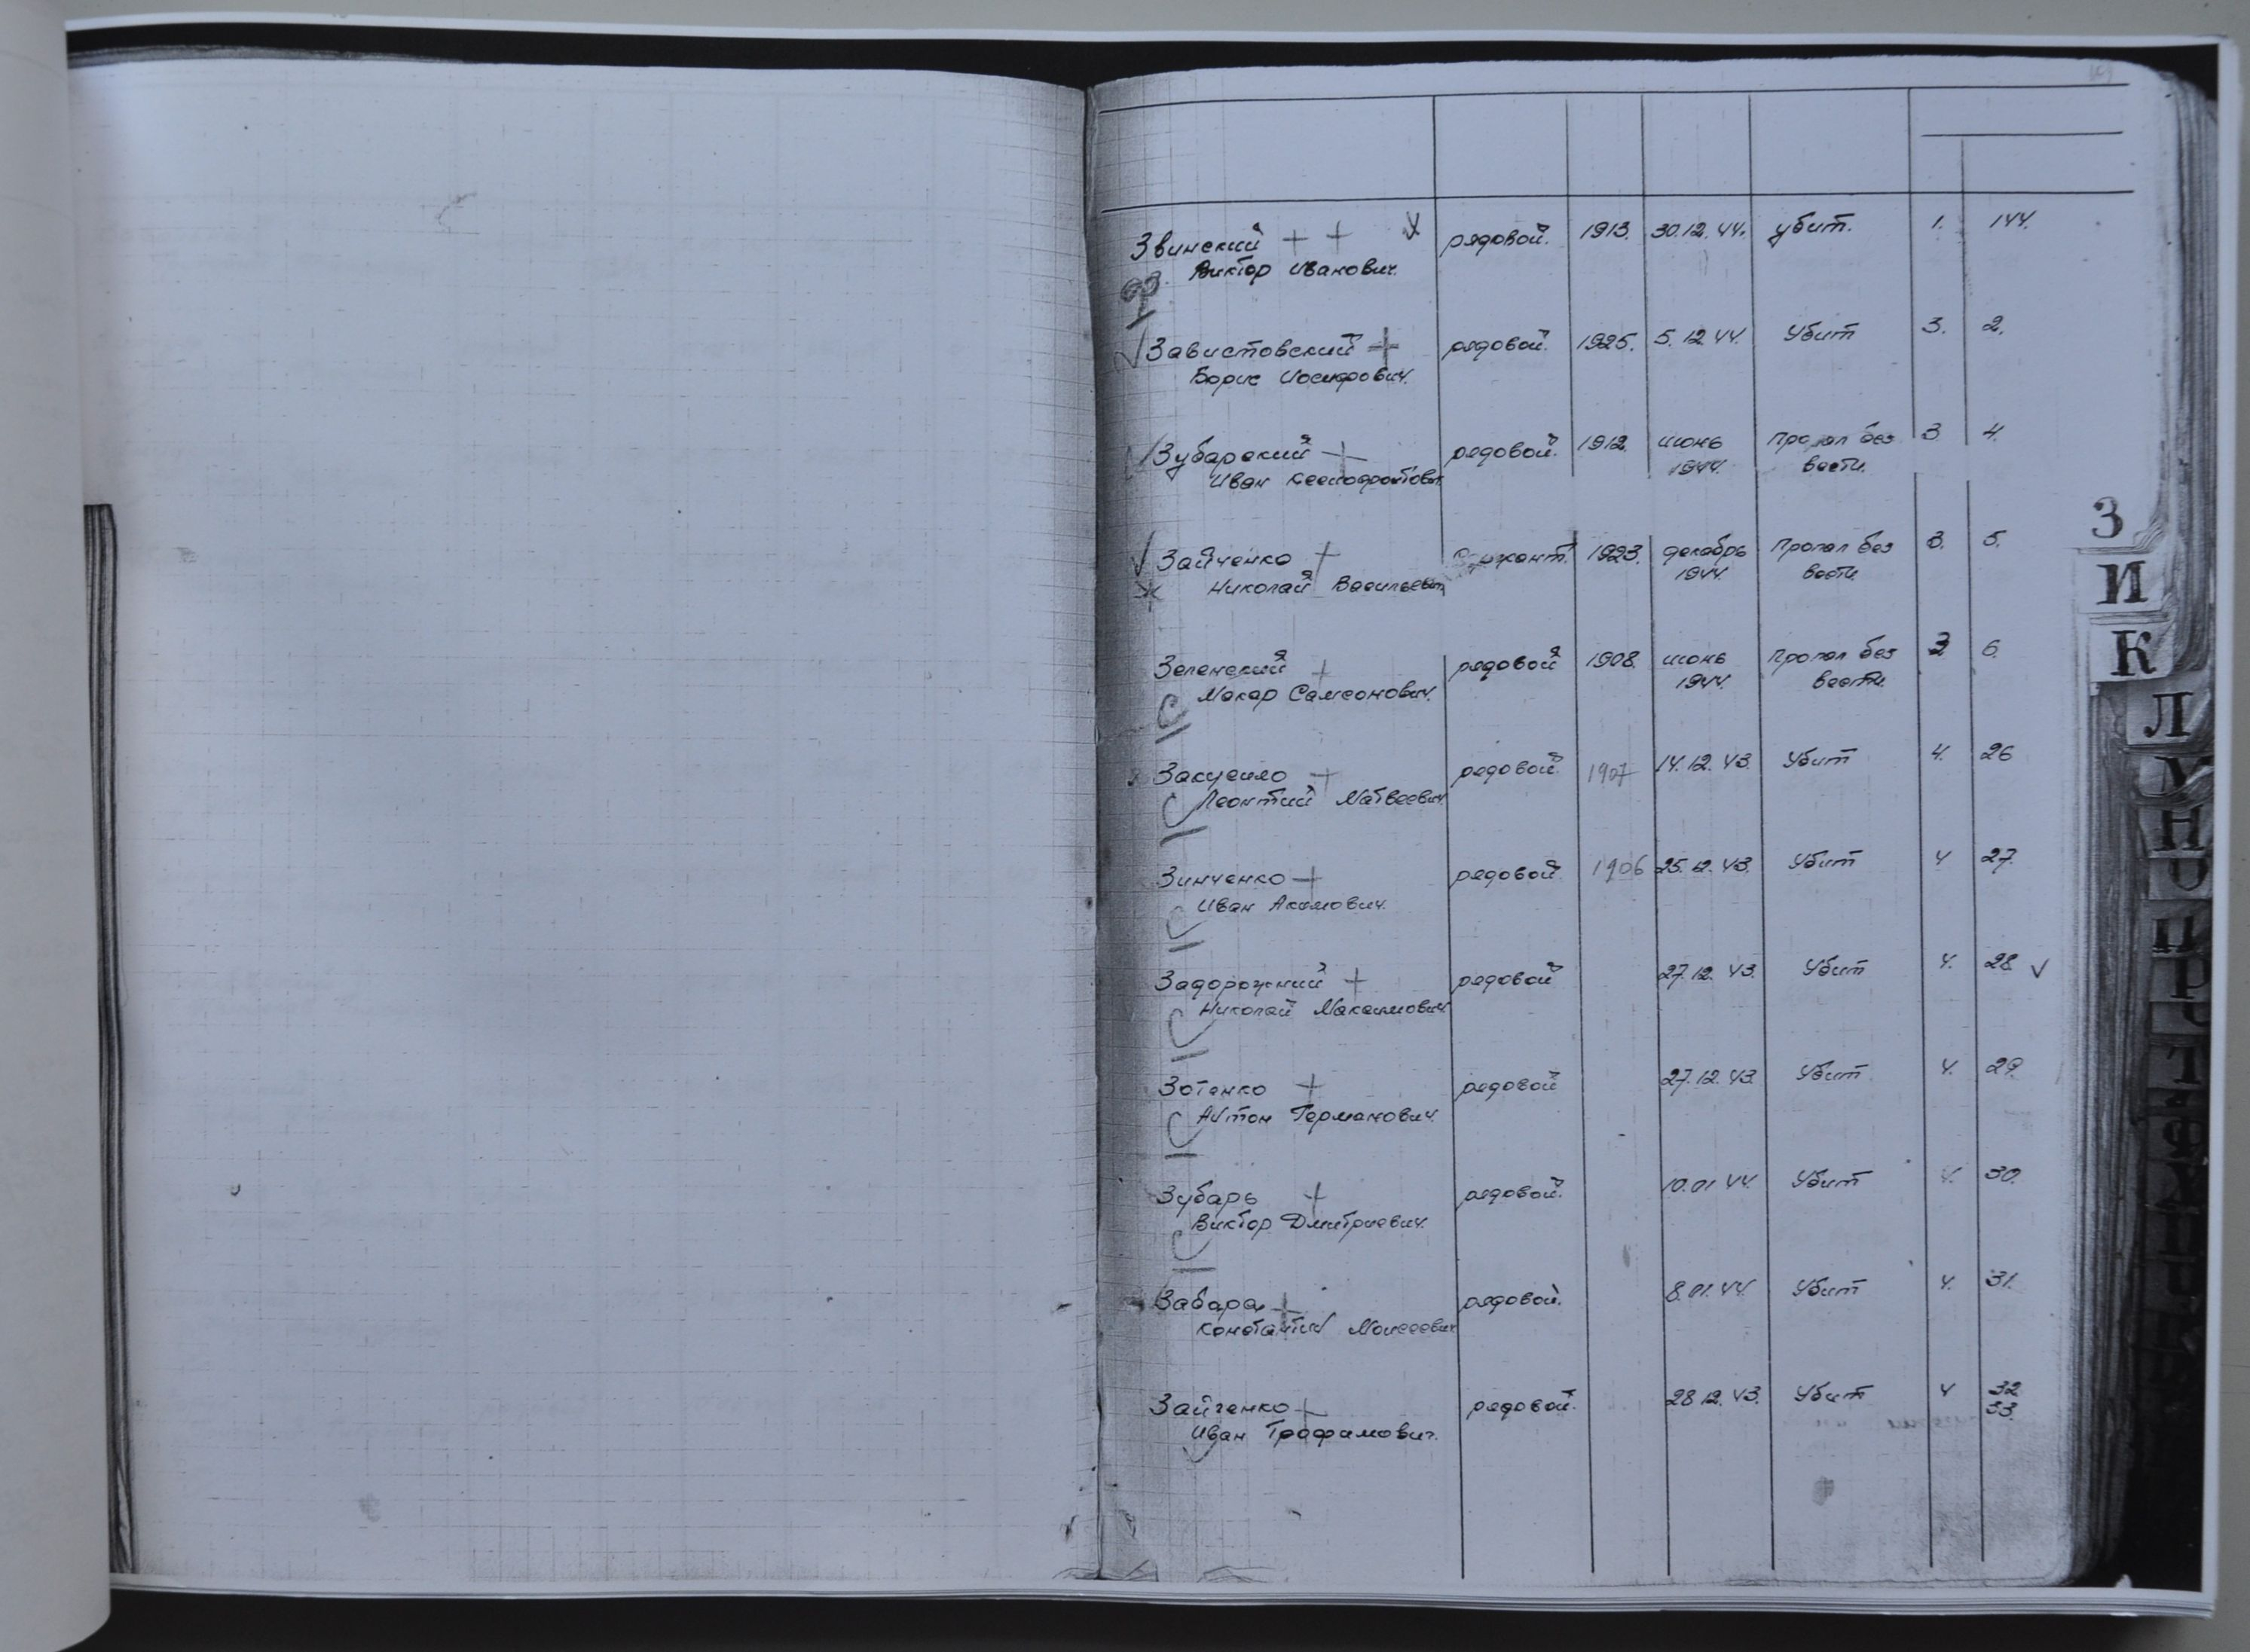 Звинский + + рядовой. 1913. 30.12.44. убит. 1. 144.
Виктор Иванович.
Завистовский + рядовой. 1925. 5.12.44. Убит 3. 2.
Борис Иосифович.
Зубарский + рядовой. 1912. июнь Пропал без 3 4.
Иван 1944. вести.
Зайченко + Сержант. 1923. декабрь Пропал без 3. 5.
Николай Васильевич 1944. вести.
З
И
Зеленский + рядовой 1908. июнь Пропал без 3 6.
Макар Самсонович. 1944. вести.
К
Л
Закусило + рядовой. 1907 14.12.43. Убит 4. 26
Леонтий Матвеевич.
Зинченко + рядовой. 1906 25.12.43. Убит 4 27.
Иван Акимович.
Н
Задорожний + рядовой 27.12.43. Убит 4. 28
Николай Максимович.
П
Р
Зотенко + рядовой 27.12.43. Убит 4. 29.
Антон Германович.
Т
Зубарь + рядовой. 10.01.44. Убит 4. 30.
Виктор Дмитриевич.
Забара + рядовой. 8.01.44. Убит 4. 31.
Константин Моисеевич
Зайченко + рядовой. 28.12.43. Убит 4 32
33.
Иван Трофимович.